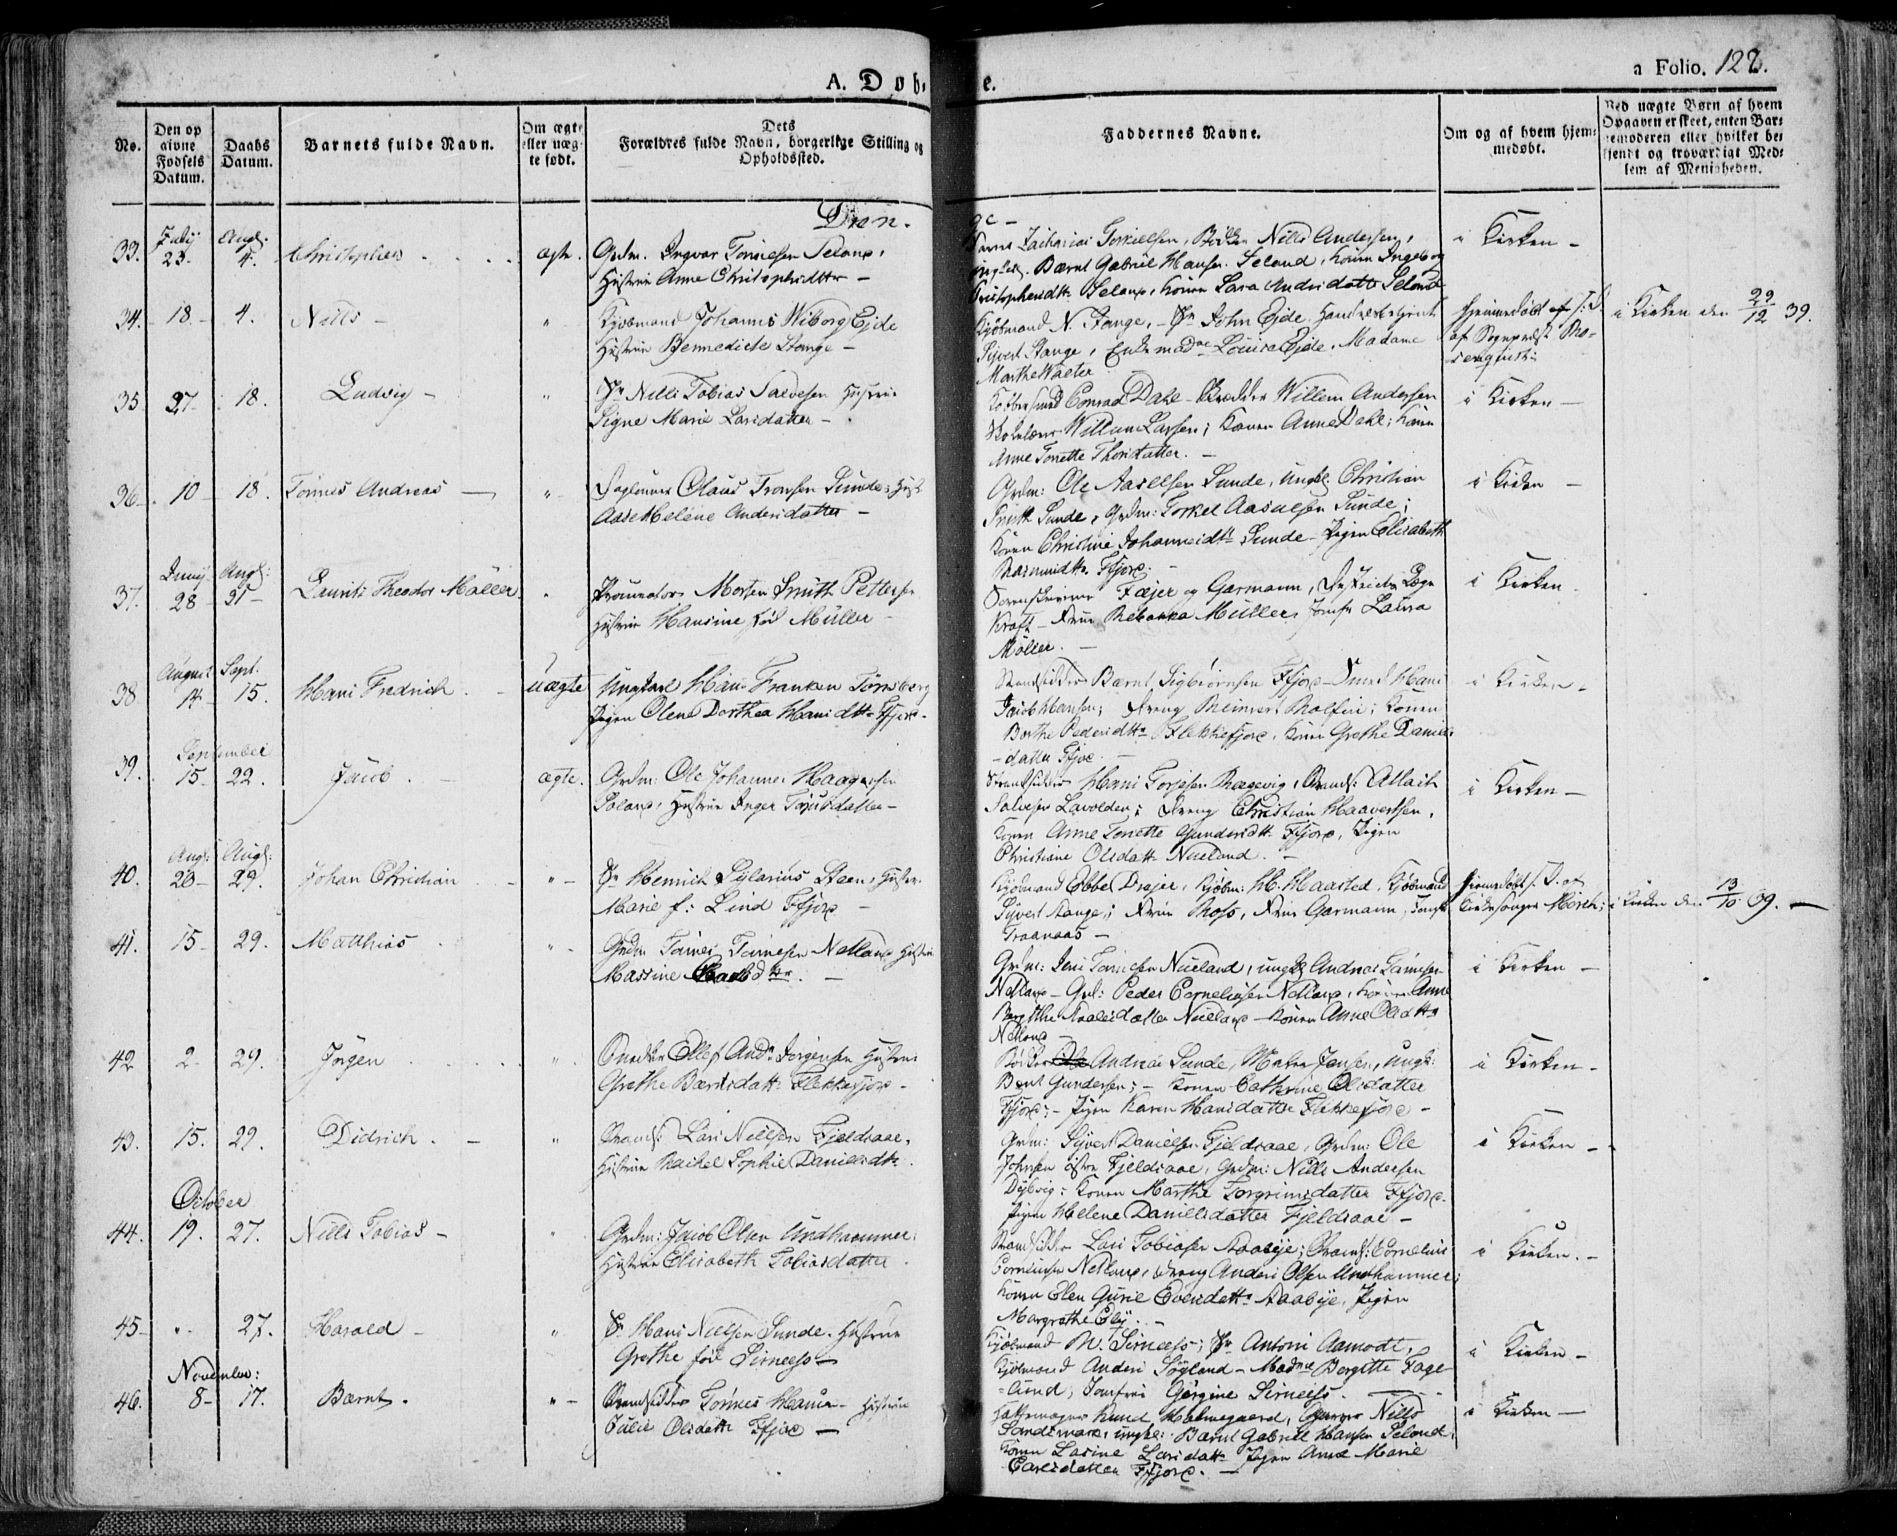 A. Døb-
e.
a Folio. 122.
No.
Den op
givne
Fødsels
Datum.
Daabs
Datum.
Barnets fulde Navn.
Om ægte
eller uæg-
te født.
Dets
Forældres fulde Navn, borgerlige Stilling og
Opholdssted.
Faddernes Navne.
Om og af hvem hjem-
medøbt.
Ved uægte Børn af hvem
Opgaven er skeet, enten Bar-
nemoderen eller hvilket be-
kjendt og troværdigt Med-
lem af Menigheden.
Dren-
ge -
33. July 23. Augs: 4. Christopher ægte. Grdm. Ingvar Tonnesen Seland,
Hustrue Anne Christophersdtter -
Zacharias Torkielsen, Nills Andersen,
Bærnt Gabriel Hansen Seland, Konen Ingeborg
Christophersdtr Seland, Konen Sara Andersdatter Seland
i Kirken -
34. 18 - 4. Nills - " Kjøbmand Johannes Wiborg Ejde
Hustrue Bennedicte Stange -
Kjøbmand N. Stange, - Hr John Ejde
Sivert Stange, Enkemadme Louise Ejde, Madame
Marthe Walter
Hjemmedøbt
af Sognepræst
i Kirken den 29/12 39.
35. 27 - 18. Ludvig - " Hr Nills Tobias Salvesen Hustrue
Signe Marie Larsdatter -
Kobbersmed Conrad Dahl - Skrædder Willem Andersen
Willum Larsen; Konen Anne Dahl; Konen
Anne Tonette Thorsdatter. -
i Kirken -
36. 10 - 18. Tonnes Andreas - " Daglønner Olaus Fransen Sunde; Hust
Aase Helene Andersdatter -
Grdm: Ole Aselsen Sunde, Ungk. Christian
Smith Sunde, Grdm: Torkel Sunde;
Konen Christine Johannesdtr Sunde - Pigen Elisabeth
Rasmusdtr Ffjord. -
i Kirken -
37. Juny 28 - Augs: 31 - Laurits Theodor Møller " Procurator Morten Smith Petersen
Hustrue Hansine født Müller -
Sorenskriver Fæjer og Garmann, Læge
Kraft - Frue Rebekka Müller, Jomfr Laura
Møller. -
i Kirken -
38. August 14 - Sept. 15. Hans Fredrich. uægte Ungkarl Hans Franken Tønsberg
Pigen Olene Dorthea Hansdtr Ffjord -
Strandsidder Bærnt Sigbiørnsen Ffjord - Smed Hans
Jacob Hansen; Dreng Reinert Konen
Berthe Pedersdtr Flekkefjord, Konen Grethe Daniels
- datter Ffjord -
i Kirken -
39. September 15. 22. Jacob. - ægte. Grdm: Ole Johannes Haagensen
Hustrue Inger -
Strandsidder Hans Torjesen Rasvig, Strands:
Salvesen Lavolden; Dreng Christian Haavertsen,
Konen Anne Tonette Gundersdtr Ffjord, Pigen
Christiane Olsdatter Nueland. -
i Kirken -
40. Augs: 20 - Augs: 29. Johan Christian - " - Hr Henrich Steen, Hustr.
Marie f: Lind Ffjord -
Kjøbmand Ebbe Drejer, Kjøbm: H. Haasted, Kjøbmand
Syvert Stange; Frue Ross, Frue Garmann,
Traanaas -
Hjemmedøbt
Kirkesanger Mørch;
i Kirken den 13/10 39. -
41. 15 - 29. Matthias " - Grdm Tønnes Tønnesen Netland Hustrue
Massine -
Grdm: Jens Tønnesen Nueland, Ungk Andreas Tønnesen
Netland - Peder Corneliusen Netland, Konen Anne
Nueland - Konen Anne Olsdtr
Netland -
i Kirken -
42 2 - 29. Jørgen " Snedker Ellef Andr Jørgensen Hustrue
Grethe Bærntsdatter Flekkefjord -
Bødker Andreas Sunde, Maler Jansen, Ungk:
Bent Gundersen; - Konen Cathrine Olsdatter
Ffjord; - Pigen Karen Hansdatter Flekkefjord -
i Kirken -
43. 15. 29. Didrich. - " Strands. Lars Nielsen Fjeldsaae,
Hustrue Rachel Sophie Danielsdtr.
Grdm: Syvert Danielsen Fjeldsaae, Grdm: Ole
Johnsen østre Fjeldsaae, Grdm: Nills Andersen
Dybvig; Konen Marthe Torgrimsdatter Ffjord -
Pigen Helene Danielsdatter Fjeldsaae -
i Kirken -
October
44. 19. 27. Nills Tobias - " Grdm: Jacob Olsen Undhammer;
Hustrue Elisabeth Tobiasdatter
Strandsidder Lars Tobiasen Staabye; Strands: Cornelius
Corneliusen Netland, Dreng Anders Olsen Undhammer;
Konen Elen Gurie Evensdatter Staabye, Pigen
Margrethe Elg. -
i Kirken. -
45 - " - 27. Harald - " Hr Hans Nielsen Sunde. Hustrue
Grethe født Sirnæss -
Kjøbmand M. Sirness; Hr Antoni Aamodt,
Kjøbmand Anders Søyland - Madme Bergitte Fage-
- lund, Jomfrue Gørgine Sirness.
i Kirken -
November:
46. 8 - 17. Bærnt. " - Strandsidder Tønnes Hansen - Hustrue
Julie Olsdatter Ffjord -
Hattemager Knud Holmegaard, Garver Nills
Sandsmark, Ungk: Bærnt Gabriel Hansen Seland.
Konen Larine Larsdatter Pigen Anne Marie
Larsdatter Ffjord. -
i Kirken -